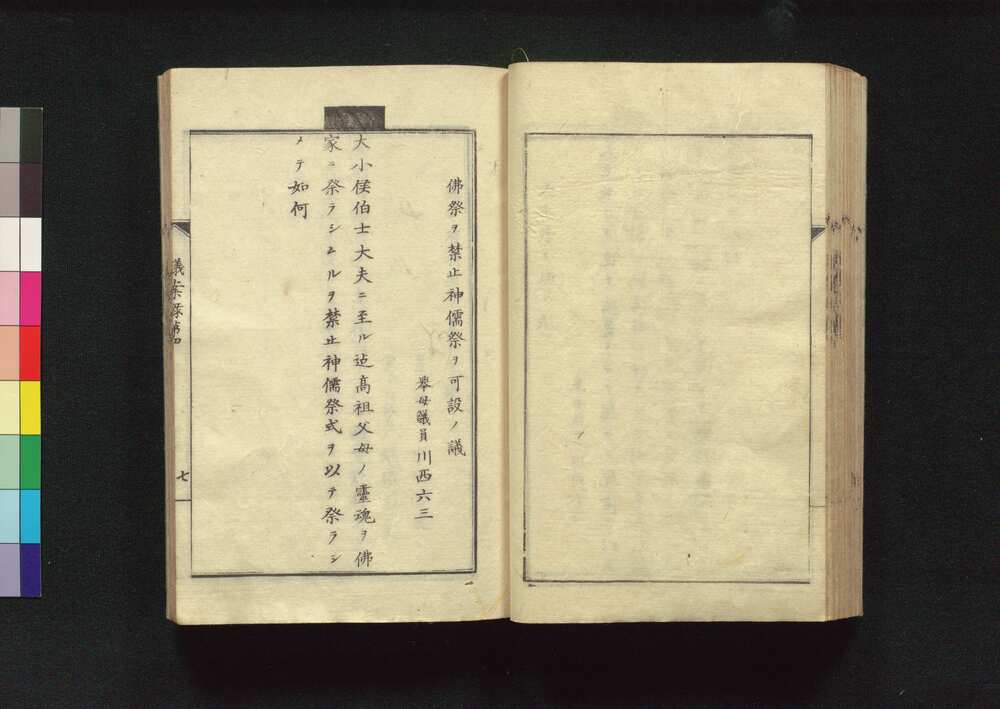 佛祭ヲ禁止神儒祭ヲ可設ノ議
擧母議員川西六三
大小侯伯士大夫ニ至ル迄高祖父母ノ靈魂ヲ佛
家ニ祭ラシムルヲ禁止神儒祭式ヲ以テ祭ラシ
メテ如何
議案録第四
七